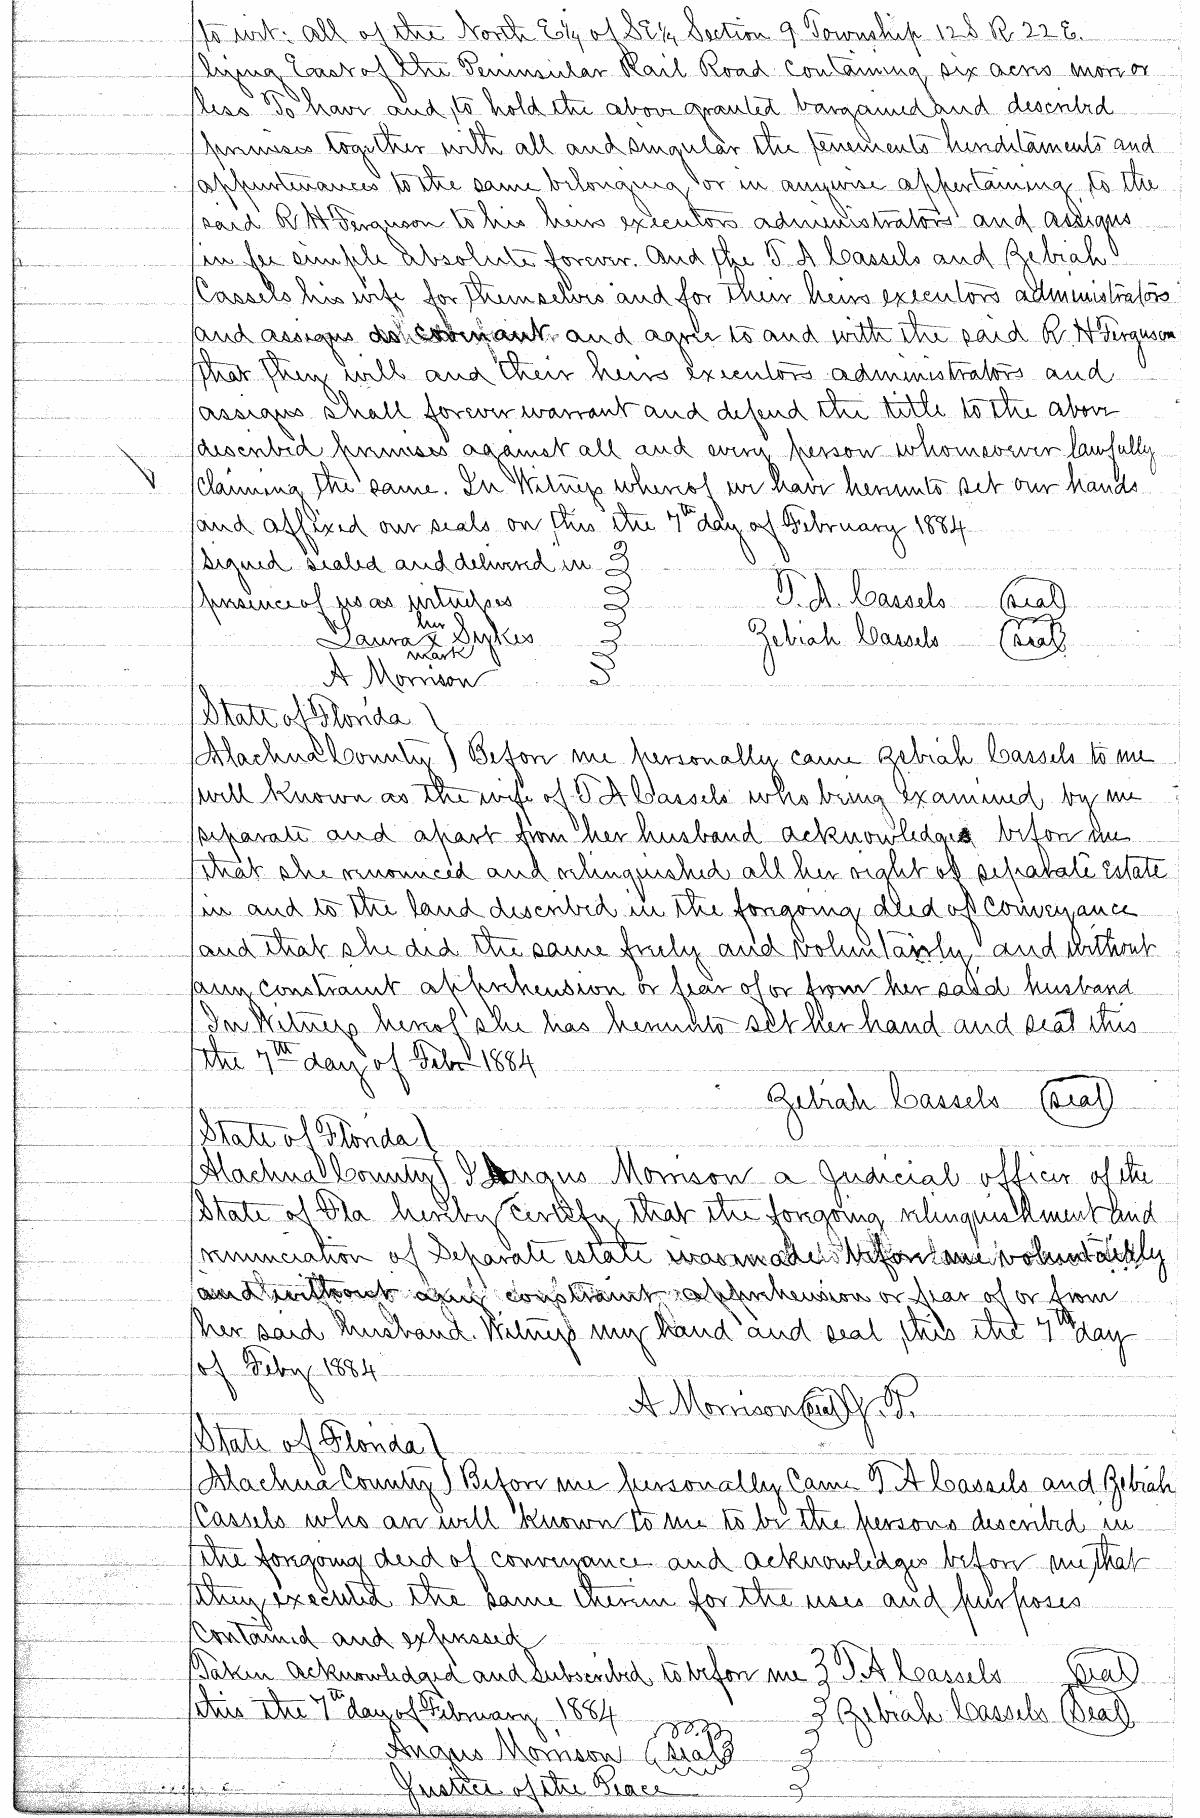 to wit: all of the North E¼ of SE¼ Section 9 Township 12 S R 22 E.
lying East of the Peninsular Rail Road containing six acres more or
less To have and to hold the above granted bargained and described
premises together with all and singular the tenements hereditaments and
appurtenances to the same belonging or in anywise appertaining to the
said R H Ferguson to his heirs executors administrators and assigns
in fee simple absolute forever. And the T A Cassels and Zebiah
Cassels his wife for themselves and for their heirs executors administrators
and assigns do covenant and agree to and with the said R H Ferguson
that they will and their heirs executors administrators and
assigns shall forever warrant and defend the title to the above
described premises against all and every person whomsoever lawfully
claiming the same. In Witness whereof we have hereunto set our hands
and affixed our seals on this the 7th day of February 1884
signed sealed and delivered in
presence of us as witnesses T. A. Cassels (seal)
Laura her x mark Sykes Zebiah Cassels (seal)
A Morrison
State of Florida )
Alachua County ) Before me personally came Zebiah Cassels to me
well known as the wife of T A Cassels who being examined by me
separate and apart from her husband acknowledges before me
that she renounced and relinquished all her right of separate Estate
in and to the land described in the foregoing deed of conveyance
and that she did the same freely and voluntarily and without
any constraint apprehension or fear of or from her said husband
In Witness hereof she has hereunto set her hand and seal this
the 7th day of Feb. 1884
Zebiah Cassels (seal)
State of Florida )
Alachua County ) I Angus Morrison a Judicial officer of the
State of Fla hereby certify that the foregoing relinquishment and
renunciation of Separate estate was made before me voluntarily
and without any constraint apprehension or fear of or from
her said husband. Witness my hand and seal this the 7th day
of Feby 1884
A Morrison (seal) J. P.
State of Florida )
Alachua County ) Before me personally Came T A Cassels and Zebiah
Cassels who are well known to me to be the persons described in
the foregoing deed of conveyance and acknowledges before me that
they executed the same therein for the uses and purposes
contained and expressed
Taken acknowledged and subscribed to before me T A Cassels (seal)
this the 7th day of February 1884 Zebiah Cassels (seal)
Angus Morrison (seal)
Justice of the Peace